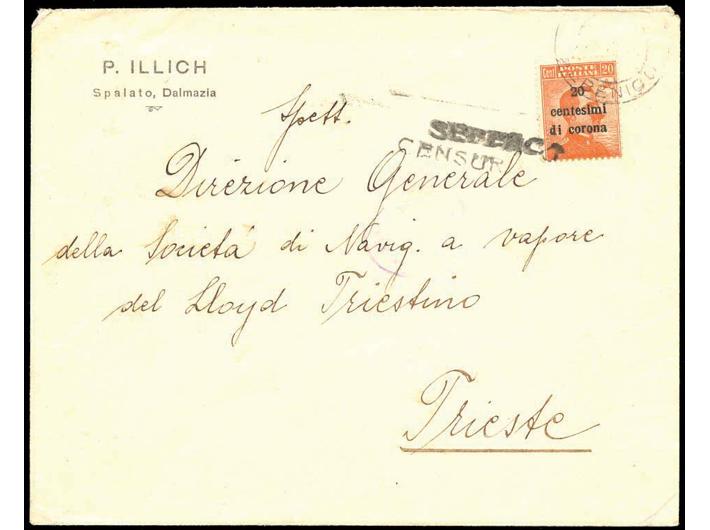 P. ILLICH
Spalato, Dalmazia
Cent POSTE ITALIANE 20
20
centesimi
di corona
CENSUR
Spett.
Direzione Generale
della Società di Navig. a vapore
del Lloyd Triestino
Trieste